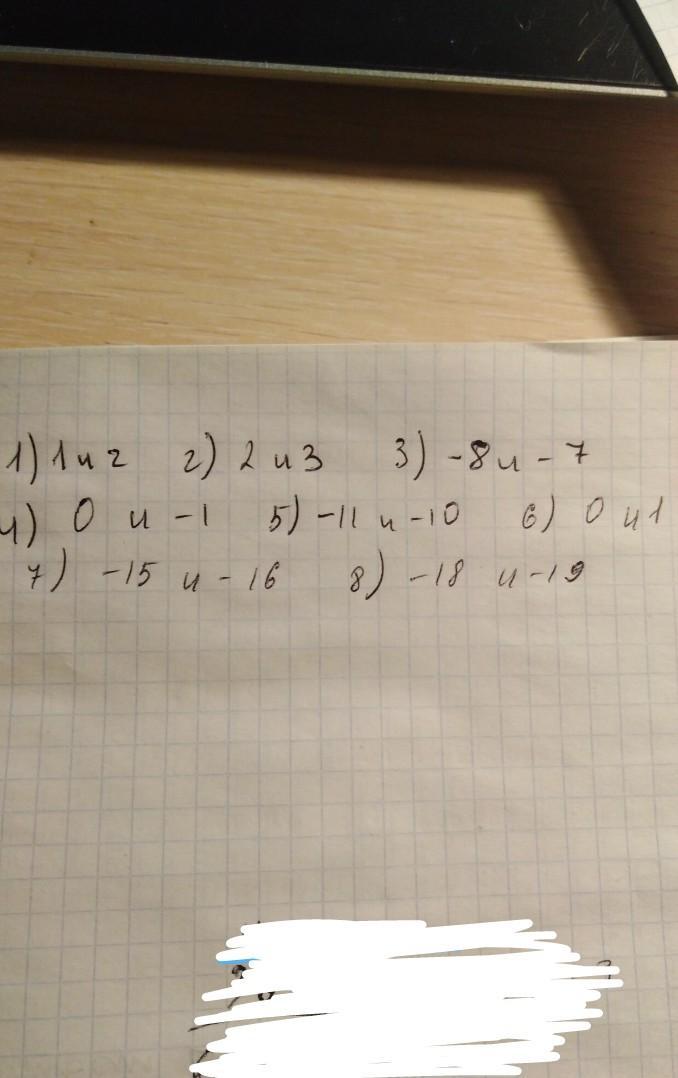 1) 1 и 2 2) 2 и 3 3) -8 и -7
4) 0 и -1 5) -11 и -10 6) 0 и 1
7) -15 и -16 8) -18 и -19